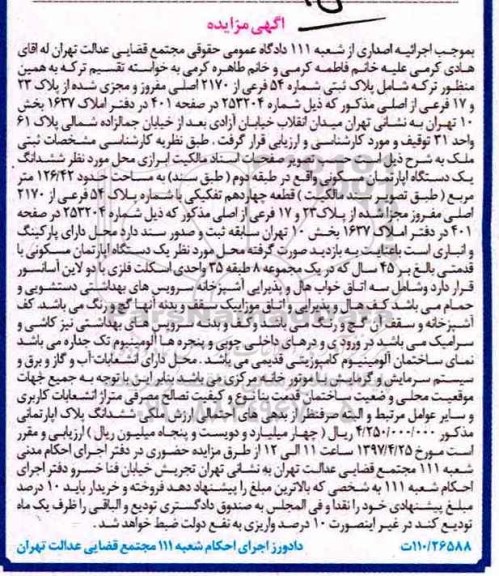 آگهی مزایده
بموجب اجرائیه اصداری از شعبه ۱۱۱ دادگاه عمومی حقوقی مجتمع قضایی عدالت تهران له آقای
هادی کرمی علیه خانم فاطمه کرمی و خانم طاهره کرمی به خواسته تقسیم ترکه به همین
منظور ترکه شامل پلاک ثبتی شماره ۵۴ فرعی از ۲۱۷۰ اصلی مفروز و مجزی شده از پلاک ۲۳
و ۱۷ فرعی از اصلی مذکور که ذیل شماره ۲۵۳۲۰۴ در صفحه ۴۰۱ در دفتر املاک ۱۶۳۷ بخش
۱۰ تهران به نشانی تهران میدان انقلاب خیابان آزادی بعد از خیابان جمالزاده شمالی پلاک ۶۱
واحد ۳۱ توقیف و مورد کارشناسی و ارزیابی قرار گرفت . طبق نظریه کارشناسی مشخصات ثبتی
ملک به شرح ذیل است طبق تصویر صفحات اسناد مالکیت ابرازی محل مورد نظر ششدانگ
یک دستگاه آپارتمان مسکونی واقع در طبقه دوم ( طبق سند) به مساحت حدود ۱۲۶/۴۲ متر
مربع ( طبق تصویر سند مالکیت ) قطعه چهاردهم تفکیکی با شماره پلاک ۵۴ فرعی از ۲۱۷۰
اصلی مفروز مجزا شده از پلاک ۲۳ و ۱۷ فرعی از اصلی مذکور که ذیل شماره ۲۵۳۲۰۴ در صفحه
۴۰۱ در دفتر املاک ۱۶۳۷ بخش ۱۰ تهران سابقه ثبت و صدور سند دارد محل دارای پارکینگ
و انباری است باعنایت به بازدید صورت گرفته محل مورد نظر یک دستگاه آپارتمان مسکونی با
قدمتی بالغ بر ۴۵ سال که در یک مجموعه ۸ طبقه ۳۵ واحدی اسکلت فلزی با دو لاین آسانسور
قرار دارد وشامل سه اتاق خواب هال و پذیرایی آشپزخانه سرویس های بهداشتی دستشویی و
حمام می باشد کف هال و پذیرایی و اتاق موزاییک سقف و بدنه آنها گچ و رنگ می باشد. کف
آشپزخانه و سقف آن گچ و رنگ می باشد وکف و بدنه سرویس های بهداشتی نیز کاشی و
سرامیک می باشد در ورودی و درهای داخلی چوبی و پنجره ها آلومینیوم تک جداره می باشد
نمای ساختمان آلومینیوم کامپوزیتی قدیمی می باشد . محل دارای انشعابات آب و گاز و برق و
سیستم سرمایش و گرمایش با موتور خانه مرکزی می باشد بنابر این با توجه به جمیع جهات
موقعیت محلی و وضعیت ساختمان قدمت بنا نوع و کیفیت مصالح مصرفی متراژ انشعابات کاربری
و سایر عوامل مرتبط و البته صرفنظر از بدهی های احتمالی ارزش ملکی ششدانگ پلاک آپارتمانی
مذکور ۴/۲۵۰/۰۰۰/۰۰۰ ریال ( چهار میلیارد و دویست و پنجاه میلیون ریال ) ارزیابی و مقرر
است مورخ ۱۳۹۷/۴/۲۵ ساعت ۱۱ الی ۱۲ از طرق مزایده حضوری در دفتر اجرای احکام مدنی
شعبه ۱۱۱ مجتمع قضایی عدالت تهران به نشانی تهران تجریش خیابان فنا خسرو دفتر اجرای
احکام شعبه ۱۱۱ به شخصی که بالاترین مبلغ را پیشنهاد دهد فروخته و خریدار باید ۱۰ درصد
مبلغ پیشنهادی خود را نقدا و فی المجلس به صندوق دادگستری تودیع و الباقی را ظرف یک ماه
تودیع کند در غیر اینصورت ۱۰ درصد واریزی به نفع دولت ضبط خواهد شد .
۱۱۰/۲۶۵۸۸ت دادورز اجرای احکام شعبه ۱۱۱ مجتمع قضایی عدالت تهران